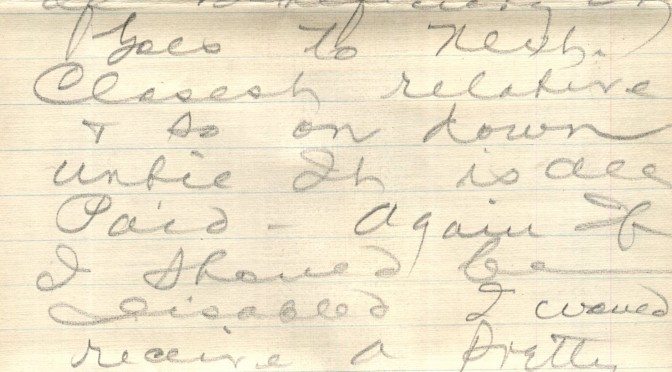 Goes to Next.
Closest relative
+ so on down
until It is all
Paid - Again If
I should be
disabled I would
receive a Pretty